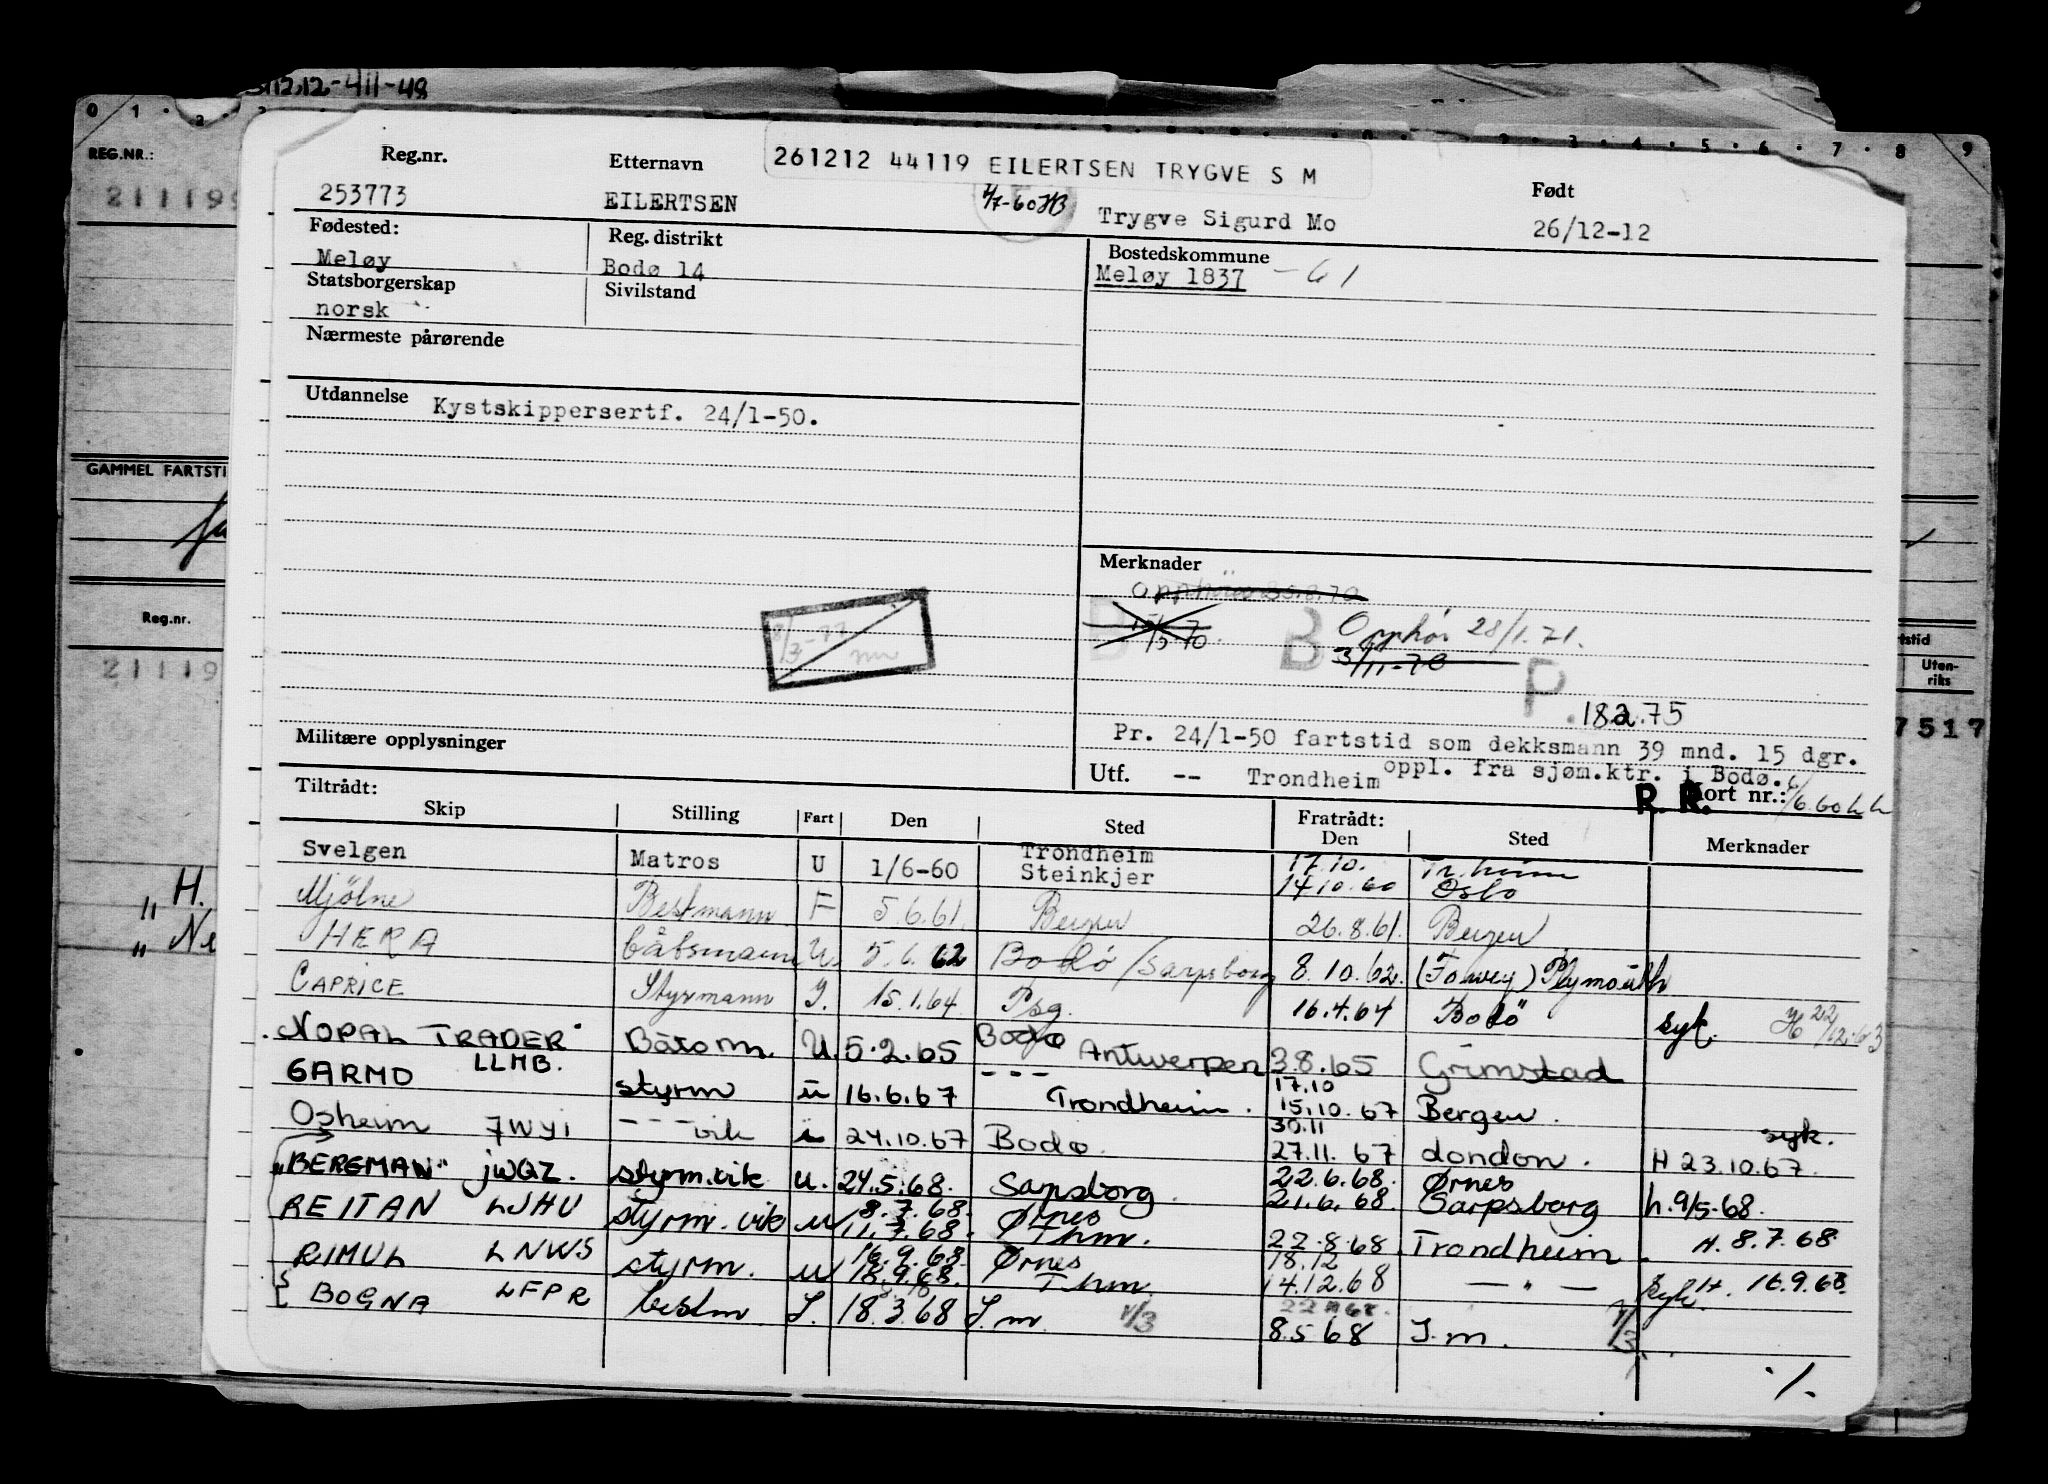 12,12-411-48
0 1 2
2 3 4 5 6 7 8 9
REG.NR.:
21119
GAMMEL FARTSTI
Reg.nr.
21119
H.
Ne
rtstid
Uten-
riks
7517
Reg.nr. Etternavn 261212 44119 EILERTSEN TRYGVE S M Født
253773 EILERTSEN 4/7-60 HB Trygve Sigurd Mo 26/12-12
Fødested: Reg. distrikt Bostedskommune
Meløy Bodø 14 Meløy 1837 - 61
Statsborgerskap Sivilstand
norsk
Nærmeste pårørende
Utdannelse Kystskippersertf. 24/1-50.
Merknader
B B Opphör 28/1.71.
3/11-70
P. 182.75
Militære opplysninger
Pr. 24/1-50 fartstid som dekksmann 39 mnd. 15 dgr.
oppl. fra sjøm.ktr. i Bodø.
Utf. -- Trondheim R R. Kort nr.: 1/6.60
Tiltrådt: Fratrådt:
Skip Stilling Fart Den Sted Den Sted Merknader
Svelgen Matros U 1/6-60 Trondheim Steinkjer 17.10. 14.10.60 Tr.heim Oslo
Mjölne Bestmann F 5.6.61. Bergen 26.8.61. Bergen
HERA båtsmann U. 5.6.62 Bodó/Sarpsborg 8.10.62. (Fowey) Plymouth
CAPRICE Styrmann J. 15.1.64. Psg. 16.4.64 Bodö syk. H 22/12.63
"NOPAL TRADER" LLMB. Båtsm. U. 5.2.65 Bodø Antwerpen 3.8.65 Grimstad
GARMO styrm u 16.6.67 --- Trondheim. 17.10 15.10.67 Bergen.
Osheim JWYI --- vik u 24.10.67 Bodø. 30.11 27.11.67 London. syk. H 23.10.67.
"BERGMAN" JWQZ. styrm.vik u. 24.5.68. Sarpsborg. 22.6.68. 21.6.68. Ørnes Sarpsborg h. 9/5-68.
REITAN LJHU styrm. vik u 8.7.68. 11.7.68. Ørnes Thm. 22.8.68. Trondheim. H. 8.7.68
RIMUL LNWS styrm. u 16.9.68 18.9.68. Ørnes Thm. 18.12 14.12.68 — " — syk. H. 16.9.68.
BOGNA LFPR bestm J. 18.3.68 J.m. 1/3 8.5.68 J.m. 1/3
./.